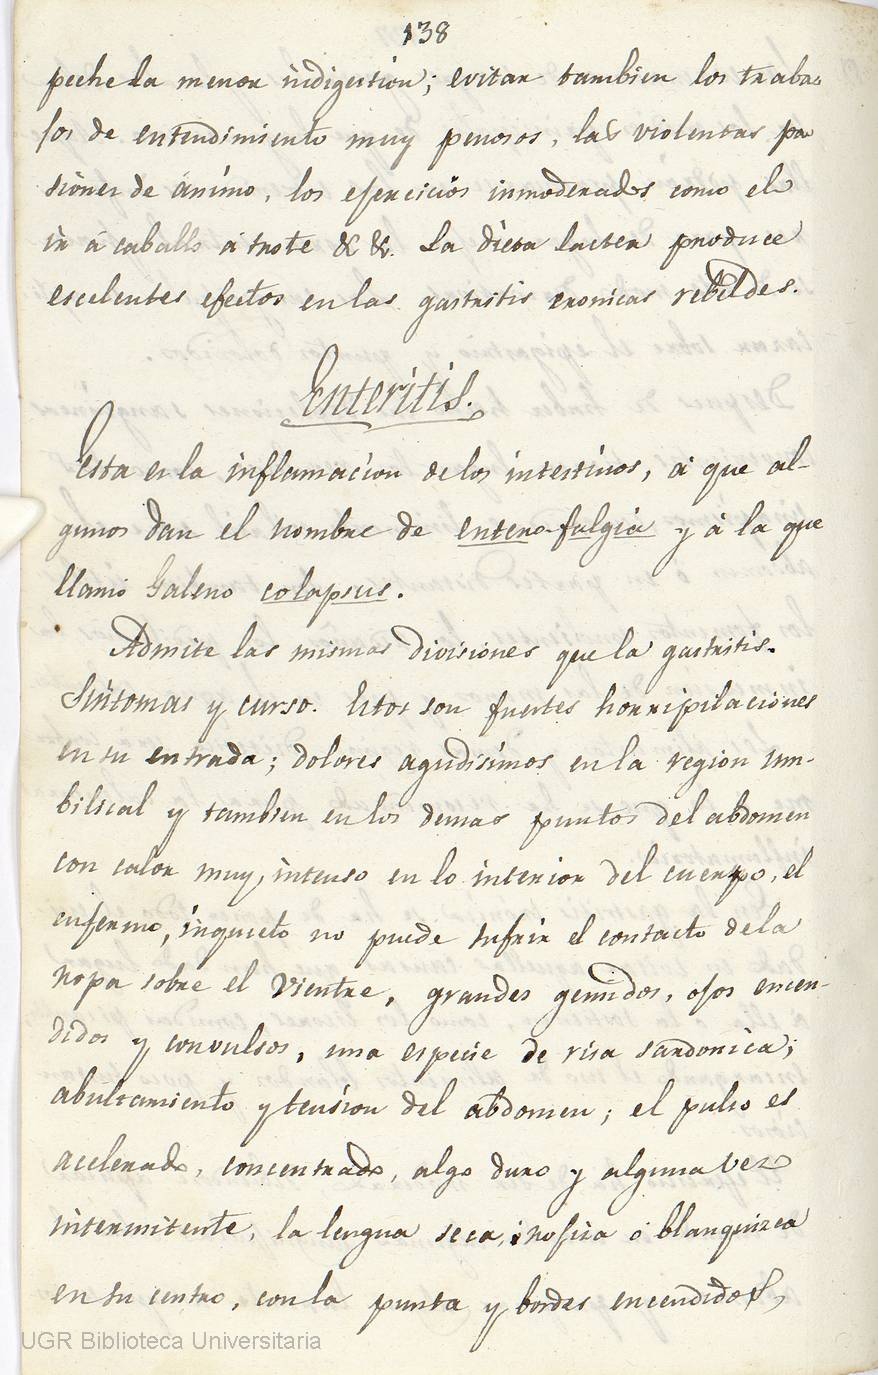 138
peche la menor indigestion; evitar tambien los traba-
jos de entendimiento muy penosos, las violentas pa
siones de ánimo, los ejercicios inmoderados como el
ir á caballo á trote & &. La dieta lactea produce
escelentes efectos en las gastritis cronicas rebeldes.
Enteritis.
Esta es la inflamacion de los intestinos, á que al-
gunos dan el nombre de entero-fulgia y á la que
llamó Galeno colapsus.
Admite las mismas divisiones que la gastritis.
Síntomas y curso. Estos son fuertes horripilaciones
en su entrada; dolores agudísimos en la region um-
bilical y tambien en los demas puntos del abdomen
con calor muy intenso en lo interior del cuerpo, el
enfermo, inquieto no puede sufrir el contacto de la
ropa sobre el vientre, grandes gemidos, ojos encen-
didos y convulsos, una especie de risa sardonica;
abultamiento y tension del abdomen; el pulso es
acelerado, concentrado, algo duro y alguna vez
intermitente, la lengua seca, rojiza ó blanquizca
en su centro, con la punta y bordes encendidos,
UGR Biblioteca Universitaria